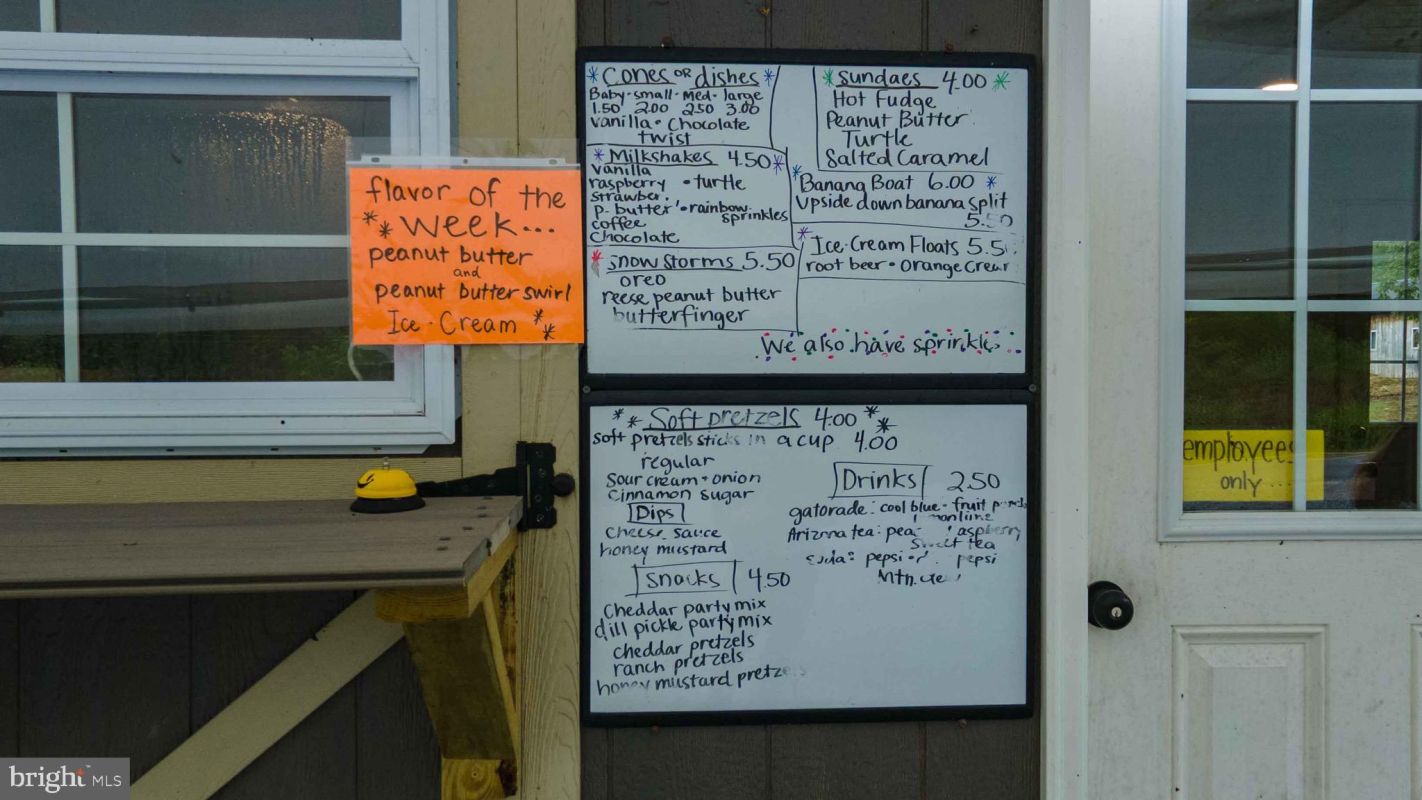 flavor of the
WEEK...
peanut butter
and
peanut butter swirl
Ice-Cream
Cones or dishes
Baby-small-Med-large
1.50 2.00 2.50 3.00
vanilla • Chocolate
twist
Milkshakes 4.50
vanilla
raspberry • turtle
strawber.
p. butter • rainbow
sprinkles
coffee
Chocolate
Snow storms 5.50
oreo
reese peanut butter
butterfinger
sundaes 4.00
Hot Fudge
Peanut Butter
Turtle
Salted Caramel
Banana Boat 6.00
Upside down banana split
5.50
Ice-Cream Floats 5.5
root beer • Orange Crear
We also have sprinkles
Soft pretzels 4.00
soft pretzels sticks in a cup 4.00
regular
Sour cream + onion
Cinnamon sugar
Dips
Cheese sauce
honey mustard
Snacks 4.50
Cheddar party mix
dill pickle party mix
cheddar pretzels
ranch pretzels
honey mustard pretze
Drinks 2.50
gatorade: cool blue - fruit
Arizona tea: pea aspberry
tea
soda: pepsi pepsi
Mtn.
employees
only...
bright MLS